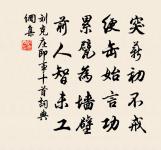 突薪初不戒
綆缶始言功
累甓為墙壁
前人智未工
刘克庄即事十首詞典
網集